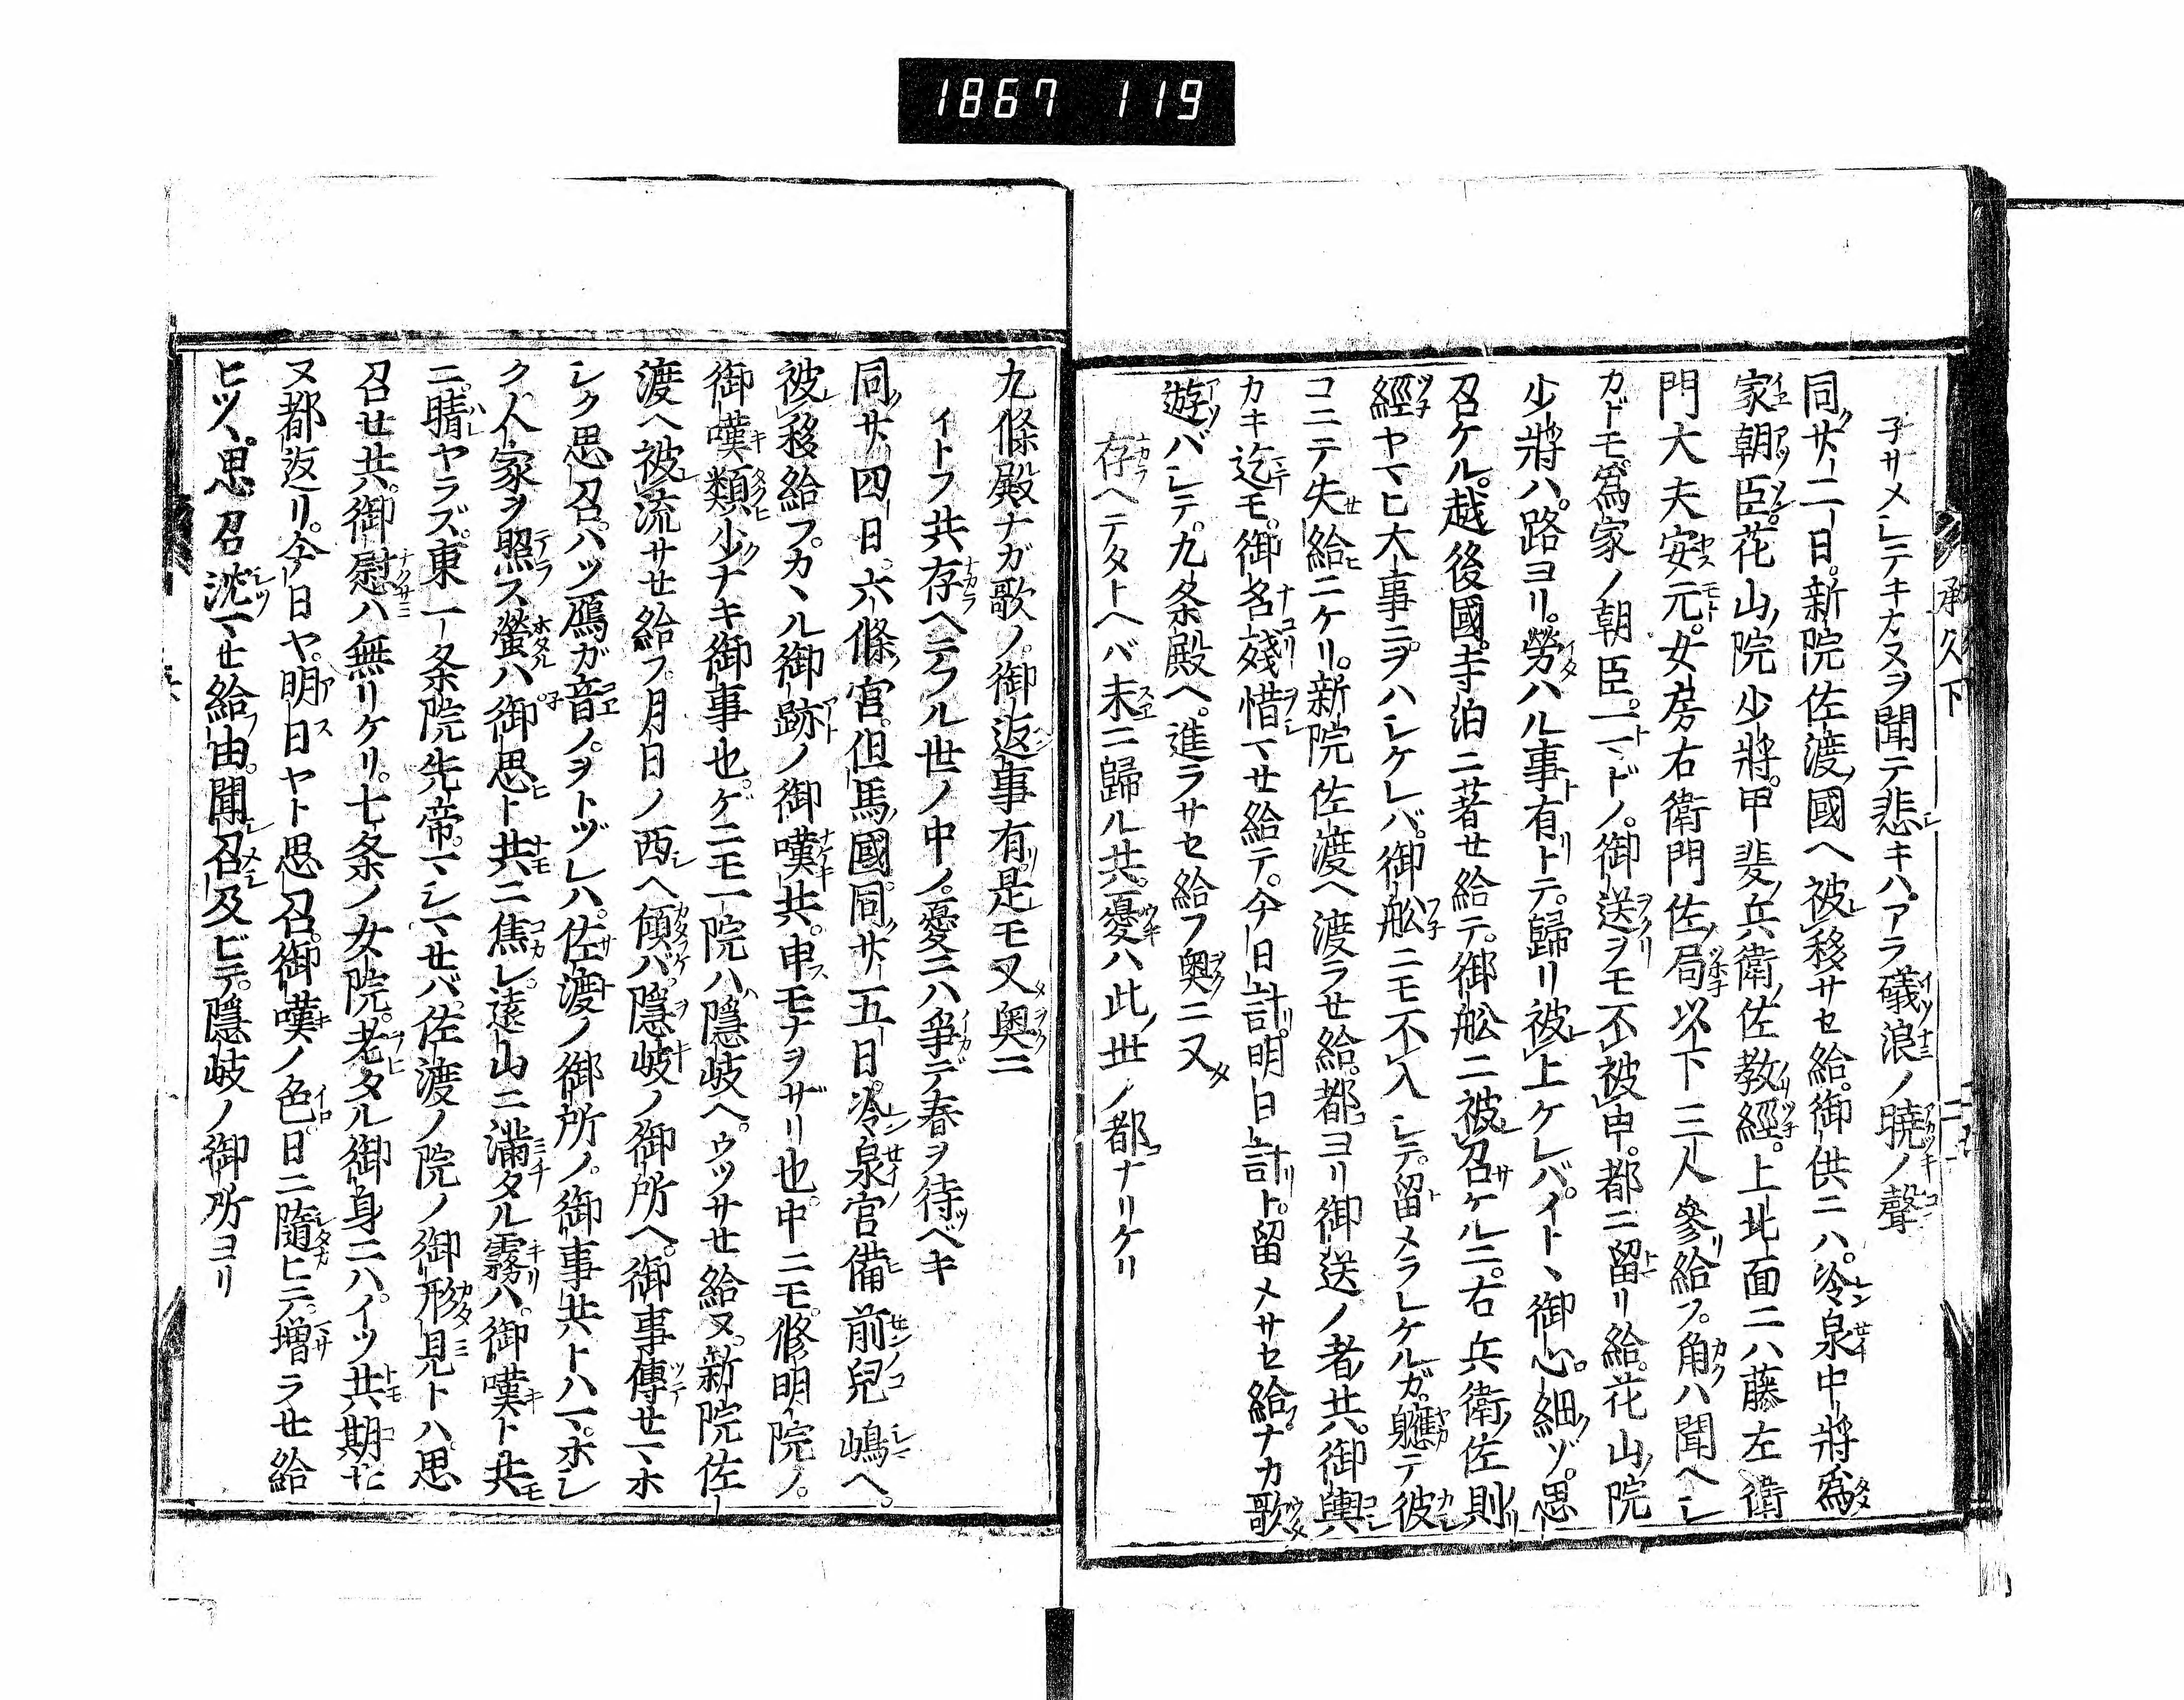 1867 119
承久下
子サメシテキカヌヲ聞テ悲キハアラ礒浪ノ暁ノ聲
同廿二日新院佐渡國ヘ被移サセ給御供ニハ冷泉中將為
家朝臣花山院少將甲斐兵衛佐教經上北面ニハ藤左衛
門大夫安元女房右衛門佐局以下三人參給フ角ハ聞ヘシ
カドモ為家ノ朝臣一マドノ御送ヲモ不被申都ニ留リ給花山院
少將ハ路ヨリ勞ハル事有トテ歸リ被上ケレバイトヽ御心細ゾ思
召ケル越後國寺泊ニ著せ給テ御舩ニ被召ケルニ右兵衛佐則
經ヤマヒ大事ニヲハシケレバ御舩ニモ不入シテ留メラレケルガ軈テ彼
コニテ失給ニケリ新院佐渡ヘ渡ラせ給都ヨリ御送ノ者共御輿
カキ迄モ御名殘惜マせ給テ今日計明日計ト留メサセ給ナカ歌
遊バシテ九条殿ヘ進ラサセ給フ奥ニ又
存ヘテタトヘバ末ニ歸ル共憂ハ此世ノ都ナリケリ
九條殿ナガ歌ノ御返事有是モ又奥ニ
イトフ共存ヘテフル世ノ中ノ憂ニハ爭デ春ヲ待ベキ
同廿四日六條宮但馬國同廿五日冷泉宮備前兒嶋ヘ
被移給フカヽル御跡ノ御嘆共申モナヲザリ也中ニモ修明院ノ
御嘆類少ナキ御事也ゲニモ一院ハ隠岐ヘウツサせ給ヌ新院佐
渡ヘ被流サせ給フ月日ノ西ヘ傾バ隠岐ノ御所ヘ御事傳せマホ
シク思召ハツ鴈ガ音ノヲトヅレハ佐渡ノ御所ノ御事共トハマホシ
ク人家ヲ照ス螢ハ御思ト共ニ焦レ遠山ニ滿タル霧ハ御嘆ト共
ニ晴ヤラズ東一条院先帝マシマせバ佐渡ノ院ノ御形見トハ思
召せ共御慰ハ無リケリ七条ノ女院老タル御身ニハイツ共期せ
ヌ都返リ今日ヤ明日ヤト思召御嘆ノ色日ニ隨ヒテ増ラせ給
ヒツヽ思召沈マせ給由聞召及ビテ隠岐ノ御所ヨリ